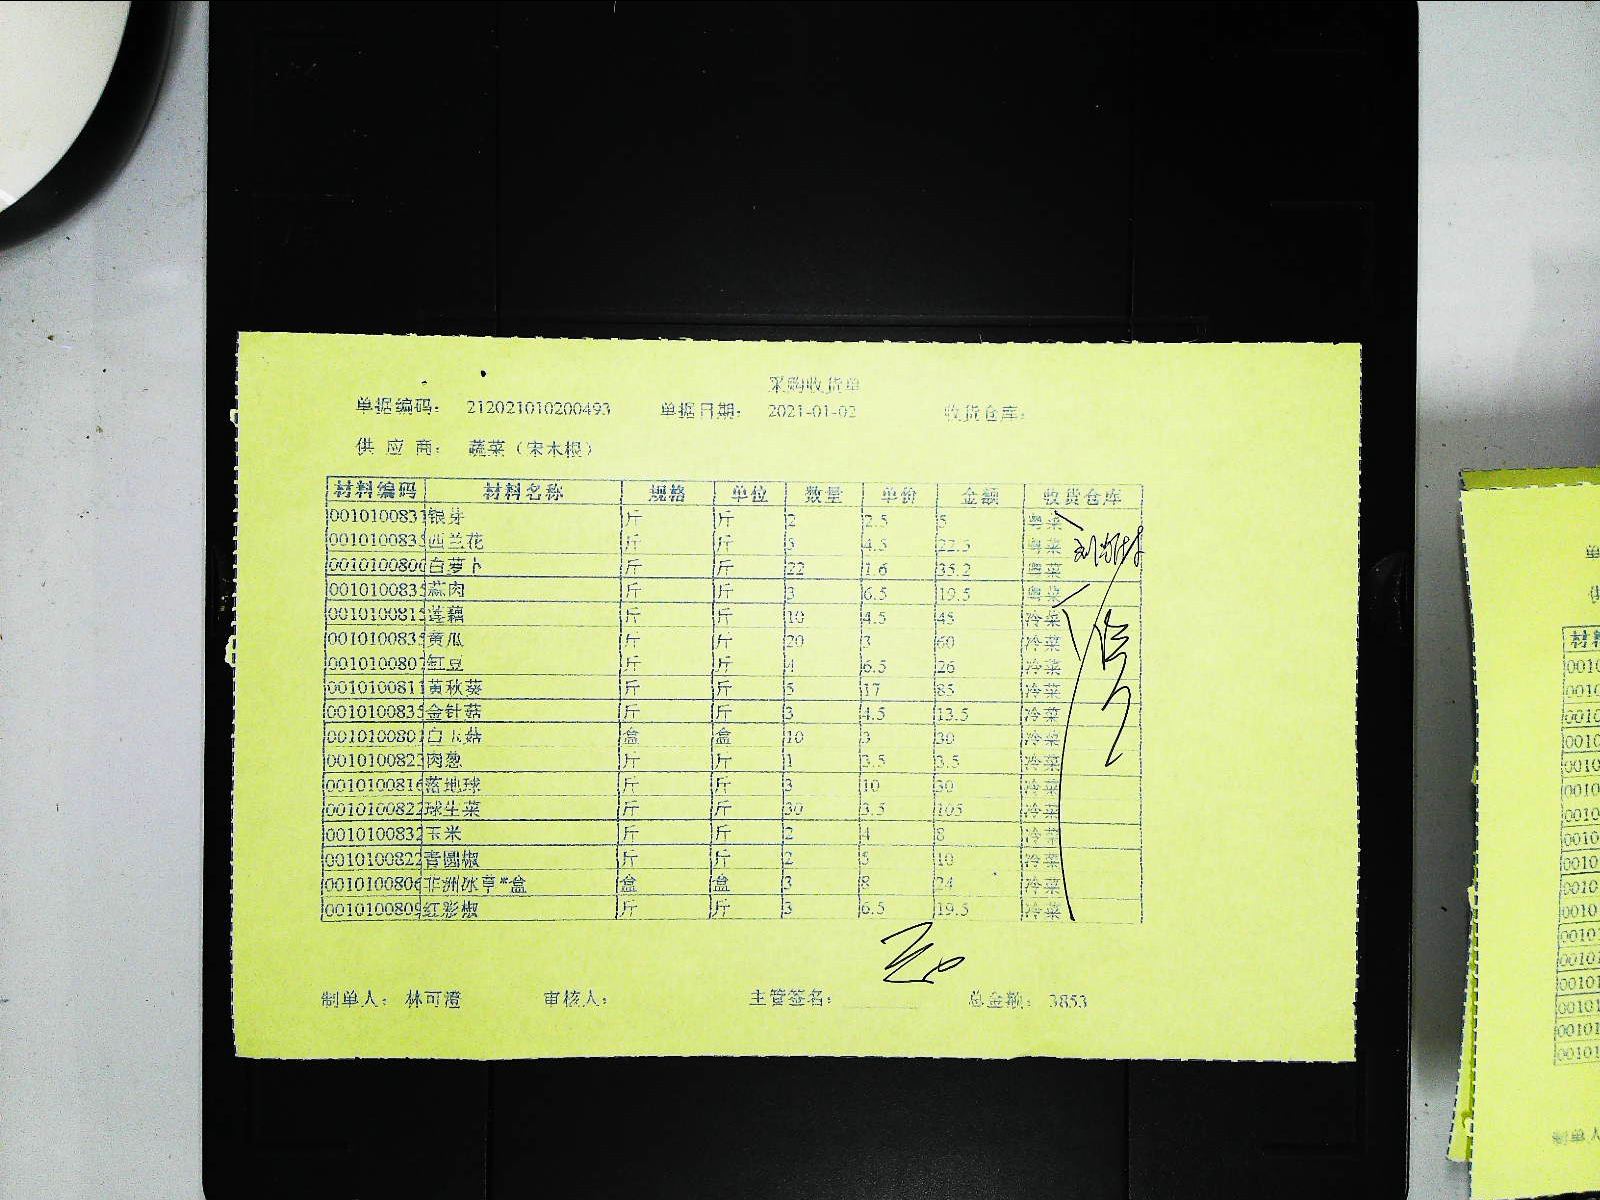 采购收货单
单据编码： 212021010200493 单据日期： 2021-01-02 收货仓库：
供 应 商： 蔬菜（宋木根）
材料编码 材料名称 规格 单位 数量 单价 金额 收货仓库
0010100831 银芽 斤 斤 2 2.5 5 粤菜
0010100835 西兰花 斤 斤 5 4.5 22.5 粤菜
0010100800 白萝卜 斤 斤 22 1.6 35.2 粤菜
0010100835 蒜肉 斤 斤 3 6.5 19.5 粤菜
0010100815 莲藕 斤 斤 10 4.5 45 冷菜
0010100835 黄瓜 斤 斤 20 3 60 冷菜
0010100807 豇豆 斤 斤 4 6.5 26 冷菜
0010100811 黄秋葵 斤 斤 5 17 85 冷菜
0010100835 金针菇 斤 斤 3 4.5 13.5 冷菜
0010100801 白玉菇 盒 盒 10 3 30 冷菜
0010100823 肉葱 斤 斤 1 3.5 3.5 冷菜
0010100816 落地球 斤 斤 3 10 30 冷菜
0010100822 球生菜 斤 斤 30 3.5 105 冷菜
0010100832 玉米 斤 斤 2 4 8 冷菜
0010100822 青圆椒 斤 斤 2 5 10 冷菜
0010100806 非洲冰草*盒 盒 盒 3 8 24 冷菜
0010100809 红彩椒 斤 斤 3 6.5 19.5 冷菜
制单人： 林可澄 审核人： 主管签名： 总金额： 3853